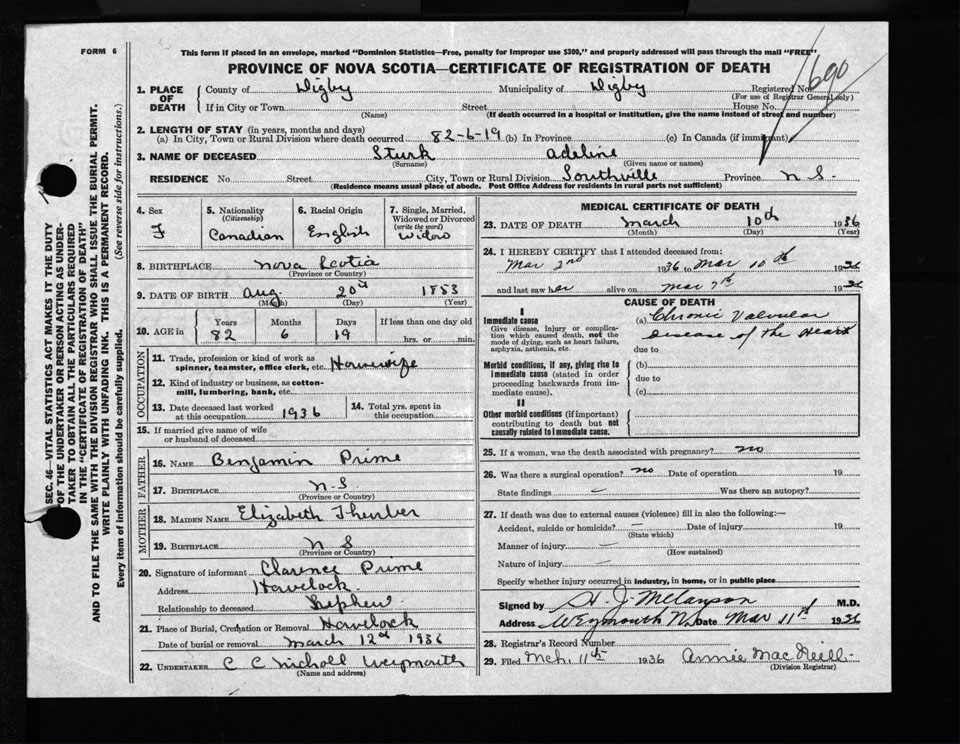 FORM 6
This form if placed in an envelope, marked "Dominion Statistics—Free, penalty for improper use $300," and properly addressed will pass through the mail "FREE"
PROVINCE OF NOVA SCOTIA—CERTIFICATE OF REGISTRATION OF DEATH
690
1. PLACE OF DEATH County of Digby Municipality of Digby Registered No.
(For use of Registrar General only)
If in City or Town Street House No.
(Name) (If death occurred in a hospital or institution, give the name instead of street and number)
2. LENGTH OF STAY (in years, months and days)
(a) In City, Town or Rural Division where death occurred 82-6-19 (b) In Province (c) In Canada (if immigrant)
3. NAME OF DECEASED Sturk Adeline
(Surname) (Given name or names)
RESIDENCE No. Street City, Town or Rural Division Southville Province N S-
(Residence means usual place of abode. Post Office Address for residents in rural parts not sufficient)
SEC. 46—VITAL STATISTICS ACT MAKES IT THE DUTY
OF THE UNDERTAKER OR PERSON ACTING AS UNDER-
TAKER TO OBTAIN ALL THE PARTICULARS REQUIRED
IN THE "CERTIFICATE OF REGISTRATION OF DEATH"
AND TO FILE THE SAME WITH THE DIVISION REGISTRAR WHO SHALL ISSUE THE BURIAL PERMIT.
WRITE PLAINLY WITH UNFADING INK. THIS IS A PERMANENT RECORD.
Every item of information should be carefully supplied. (See reverse side for instructions.)
4. Sex F
5. Nationality (Citizenship) Canadian
6. Racial Origin English
7. Single, Married, Widowed or Divorced (write the word) Widow
8. BIRTHPLACE Nova Scotia
(Province or Country)
9. DATE OF BIRTH Aug. 20th 1853
(Month) (Day) (Year)
10. AGE in Years Months Days If less than one day old
82 6 19 hrs. or min.
OCCUPATION
11. Trade, profession or kind of work as spinner, teamster, office clerk, etc. Housewife
12. Kind of industry or business, as cotton-mill, lumbering, bank, etc.
13. Date deceased last worked at this occupation 1936
14. Total yrs. spent in this occupation
15. If married give name of wife or husband of deceased
FATHER
16. NAME Benjamin Prime
17. BIRTHPLACE N-S
(Province or Country)
MOTHER
18. MAIDEN NAME Elizabeth Thurber
19. BIRTHPLACE N S
(Province or Country)
20. Signature of informant Clarence Prime
Address Havelock
Relationship to deceased Nephew
21. Place of Burial, Cremation or Removal Havelock
Date of burial or removal March 12th 1936
22. UNDERTAKER C C Nicholl Weymouth
(Name and address)
MEDICAL CERTIFICATE OF DEATH
23. DATE OF DEATH March 10th 1936
(Month) (Day) (Year)
24. I HEREBY CERTIFY that I attended deceased from:
Mar 2nd 1936 Mar 10th 1936
and last saw her alive on Mar 7th 1936
CAUSE OF DEATH
I
Immediate cause
Give disease, injury or complication which caused death, not the mode of dying, such as heart failure, asphyxia, asthenia, etc.
(a) Chronic Valvular
Disease of the Heart
due to
Morbid conditions, if any, giving rise to immediate cause (stated in order proceeding backwards from immediate cause).
(b)
due to
(c)
II
Other morbid conditions (if important) contributing to death but not causally related to immediate cause.
25. If a woman, was the death associated with pregnancy? no
26. Was there a surgical operation? no Date of operation 19
State findings — Was there an autopsy?
27. If death was due to external causes (violence) fill in also the following:—
Accident, suicide or homicide? — Date of injury 19
(State which)
Manner of injury —
(How sustained)
Nature of injury —
Specify whether injury occurred in industry, in home, or in public place
Signed by H J Melanson M.D.
Address Weymouth NS Date Mar 11th 1936
28. Registrar's Record Number
29. Filed Mch. 11th 1936 Annie MacNeill
(Division Registrar)